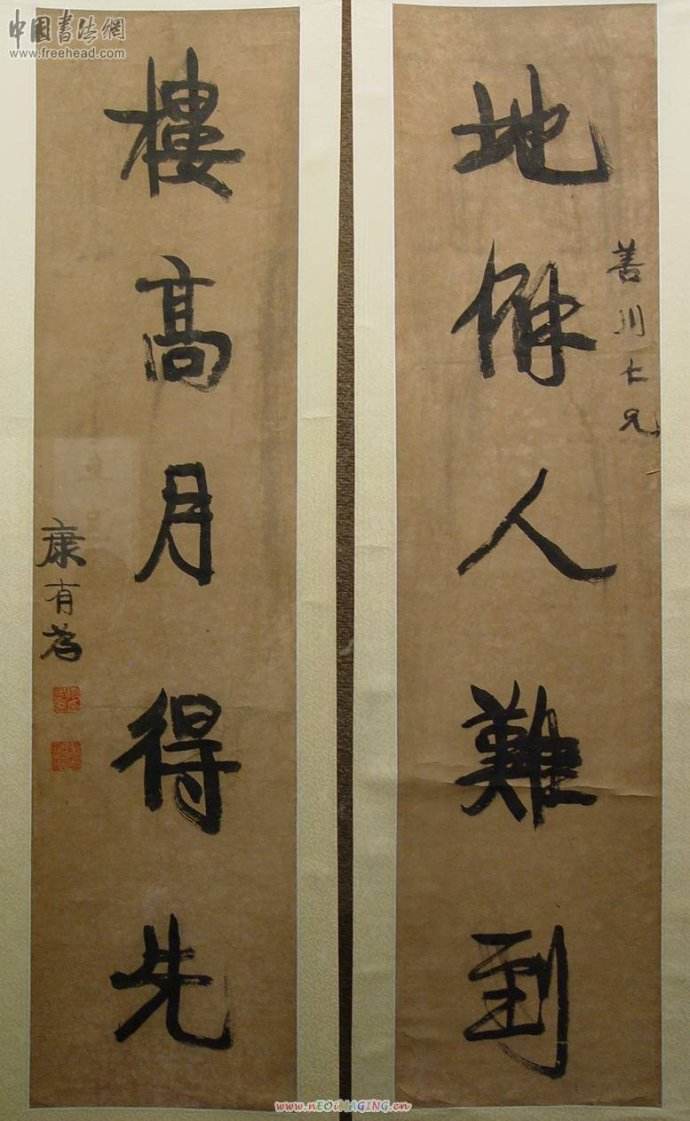 善川仁兄
地僻人難到
樓高月得先
康有為
中國書法網
www.freehead.com
www.nEOiMAGiNG.cn